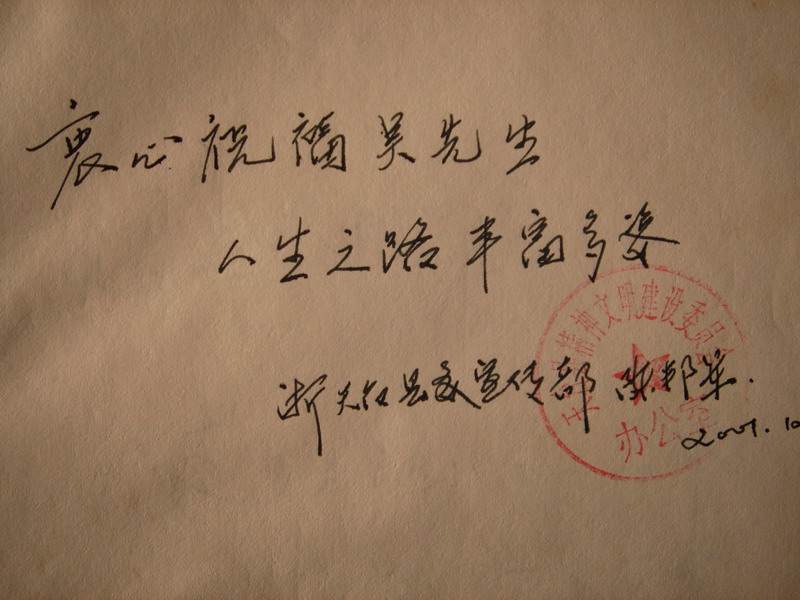 衷心祝福吴先生
人生之路丰富多姿
浙天台县委宣传部 陈邦
2001.10
精神文明建设委员会
办公室